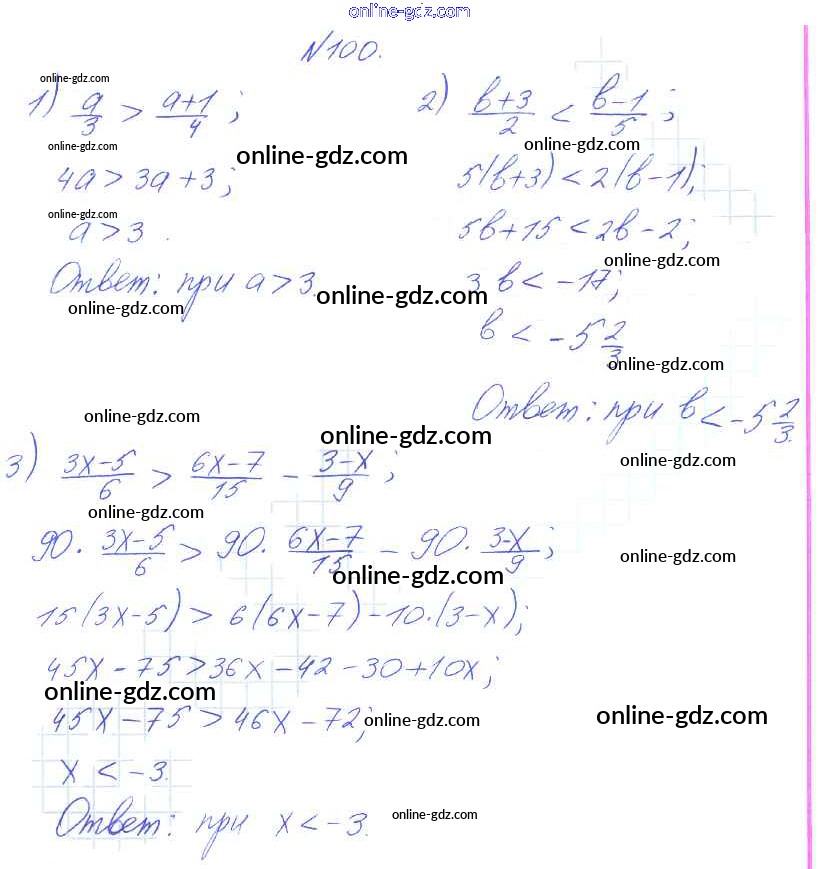 online-gdz.com
№100.
online-gdz.com
1) a/3 > (a+1)/4 ;
online-gdz.com
online-gdz.com
4a > 3a + 3 ;
online-gdz.com
a > 3 .
Ответ: при a > 3.
online-gdz.com
online-gdz.com
2) (b+3)/2 < (b-1)/5 ;
online-gdz.com
5(b+3) < 2(b-1);
5b + 15 < 2b - 2;
online-gdz.com
3b < -17;
b < -5 2/3
online-gdz.com
Ответ: при b < -5 2/3.
online-gdz.com
online-gdz.com
online-gdz.com
3) (3x-5)/6 > (6x-7)/15 - (3-x)/9 ;
online-gdz.com
90 · (3x-5)/6 > 90 · (6x-7)/15 - 90 · (3-x)/9 ;
online-gdz.com
online-gdz.com
15(3x-5) > 6(6x-7) - 10·(3-x);
45x - 75 > 36x - 42 - 30 + 10x;
online-gdz.com
45x - 75 > 46x - 72;
online-gdz.com
online-gdz.com
x < -3.
Ответ: при x < -3.
online-gdz.com